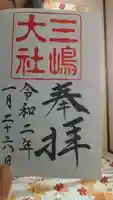 三嶋
大社
奉拝
令和二年
一月二十八日